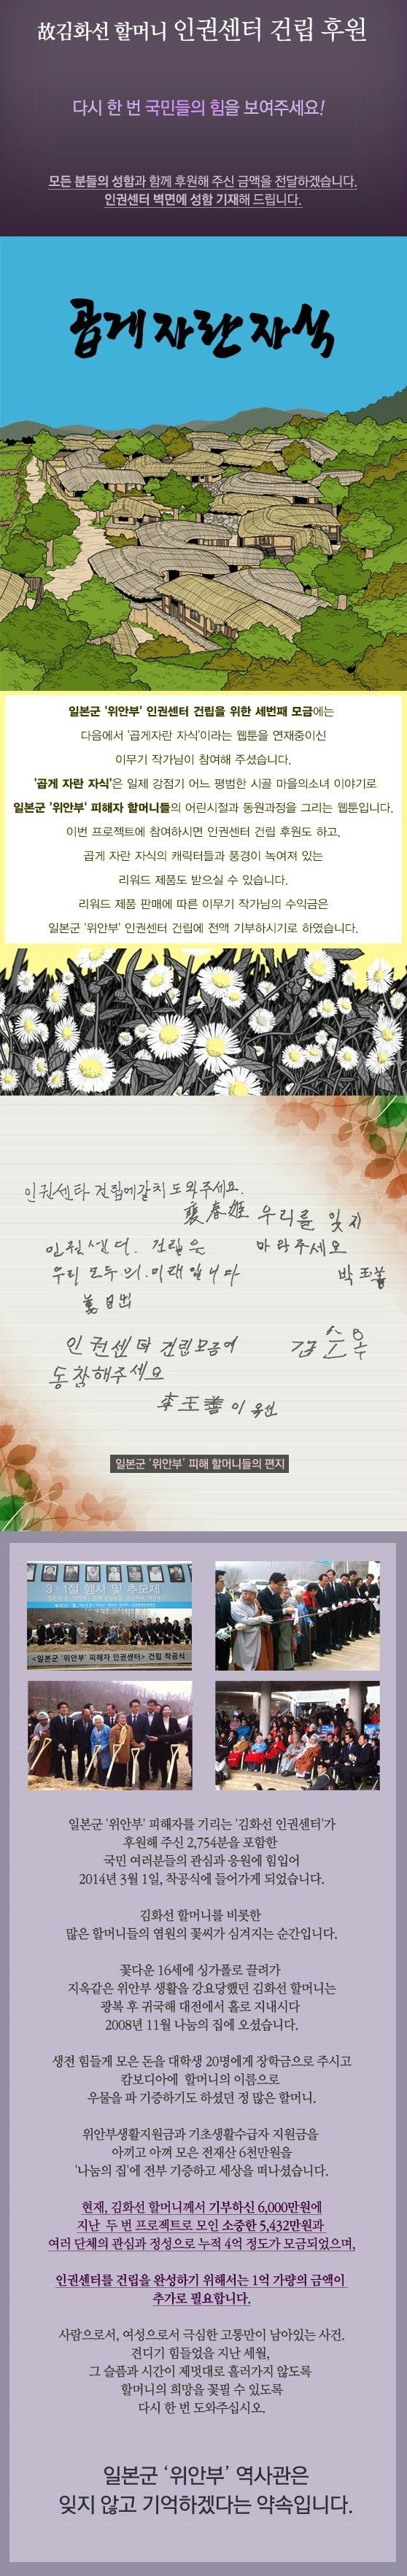 故김화선 할머니 인권센터 건립 후원
다시 한 번 국민들의 힘을 보여주세요!
모든 분들의 성함과 함께 후원해 주신 금액을 전달하겠습니다.
인권센터 벽면에 성함 기재해 드립니다.
곱게 자란 자식
일본군 '위안부' 인권센터 건립을 위한 세번째 모금에는
다음에서 '곱게자란 자식'이라는 웹툰을 연재중이신
이무기 작가님이 참여해 주셨습니다.
'곱게 자란 자식'은 일제 강점기 어느 평범한 시골 마을의소녀 이야기로
일본군 '위안부' 피해자 할머니들의 어린시절과 동원과정을 그리는 웹툰입니다.
이번 프로젝트에 참여하시면 인권센터 건립 후원도 하고,
곱게 자란 자식의 캐릭터들과 풍경이 녹여져 있는
리워드 제품도 받으실 수 있습니다.
리워드 제품 판매에 따른 이무기 작가님의 수익금은
일본군 '위안부' 인권센터 건립에 전액 기부하시기로 하였습니다.
인권센타 건립에같치도와주세요.
裵春姬 우리를 잊지
인권센터. 건립은 마라주세요
우리 모두의.미래입니다 朴玉善
姜日出
인권센터 건립모금에 김순옥
동참해주세요
李玉善 이옥선
일본군 '위안부' 피해 할머니들의 편지
3·1절 행사 및 추모제
<일본군 '위안부' 피해자 인권센터> 건립 착공식
일본군 '위안부' 피해자를 기리는 '김화선 인권센터'가
후원해 주신 2,754분을 포함한
국민 여러분들의 관심과 응원에 힘입어
2014년 3월 1일, 착공식에 들어가게 되었습니다.
김화선 할머니를 비롯한
많은 할머니들의 염원의 꽃씨가 심겨지는 순간입니다.
꽃다운 16세에 싱가폴로 끌려가
지옥같은 위안부 생활을 강요당했던 김화선 할머니는
광복 후 귀국해 대전에서 홀로 지내시다
2008년 11월 나눔의 집에 오셨습니다.
생전 힘들게 모은 돈을 대학생 20명에게 장학금으로 주시고
캄보디아에 할머니의 이름으로
우물을 파 기증하기도 하셨던 정 많은 할머니.
위안부생활지원금과 기초생활수급자 지원금을
아끼고 아껴 모은 전재산 6천만원을
'나눔의 집'에 전부 기증하고 세상을 떠나셨습니다.
현재, 김화선 할머니께서 기부하신 6,000만원에
지난 두 번 프로젝트로 모인 소중한 5,432만원과
여러 단체의 관심과 정성으로 누적 4억 정도가 모금되었으며,
인권센터를 건립을 완성하기 위해서는 1억 가량의 금액이
추가로 필요합니다.
사람으로서, 여성으로서 극심한 고통만이 남아있는 사건.
견디기 힘들었을 지난 세월,
그 슬픔과 시간이 제멋대로 흘러가지 않도록
할머니의 희망을 꽃필 수 있도록
다시 한 번 도와주십시오.
일본군 '위안부' 역사관은
잊지 않고 기억하겠다는 약속입니다.